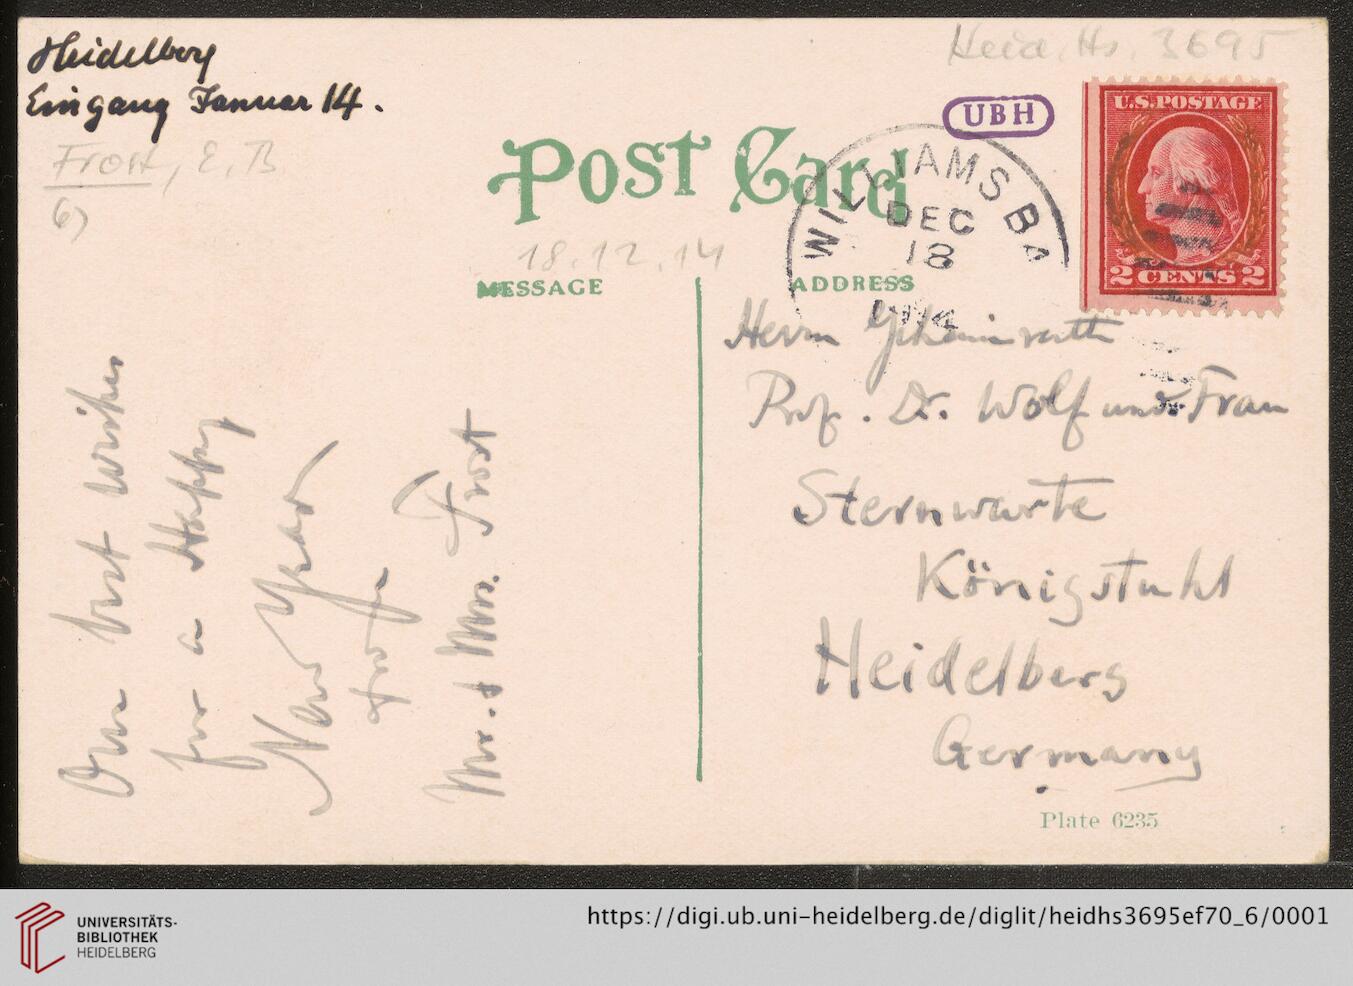 Heidelberg
Eingang Januar 14.
Frost, E. B
6)
Heid. Hs. 3695
UBH
U.S. POSTAGE
2 CENTS 2
Post Card
WILLIAMS BA
DEC
18
1914
18.12.14
MESSAGE
ADDRESS
Our best wishes
for a Happy
New Year
from
Mr. & Mrs. Frost
Herrn Geheimrath
Prof. Dr. Wolf und Frau
Sternwarte
Königstuhl
Heidelberg
Germany
Plate 6235
UNIVERSITÄTS-
BIBLIOTHEK
HEIDELBERG
https://digi.ub.uni-heidelberg.de/diglit/heidhs3695ef70_6/0001